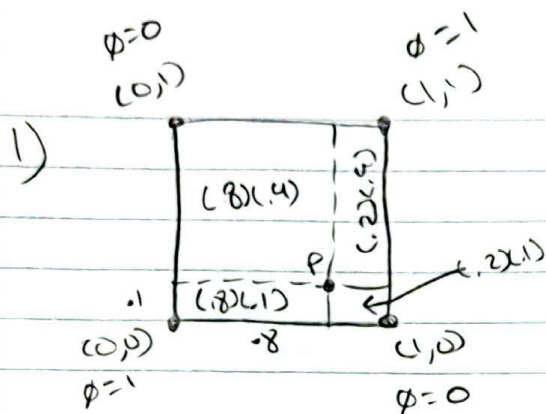 φ=0 φ=1
(0,1) (1,1)
1)
(.8)(.9) (.2)(.9)
P (.2)(.1)
.1 (.8)(.1)
(0,0) .8 (1,0)
φ=1 φ=0